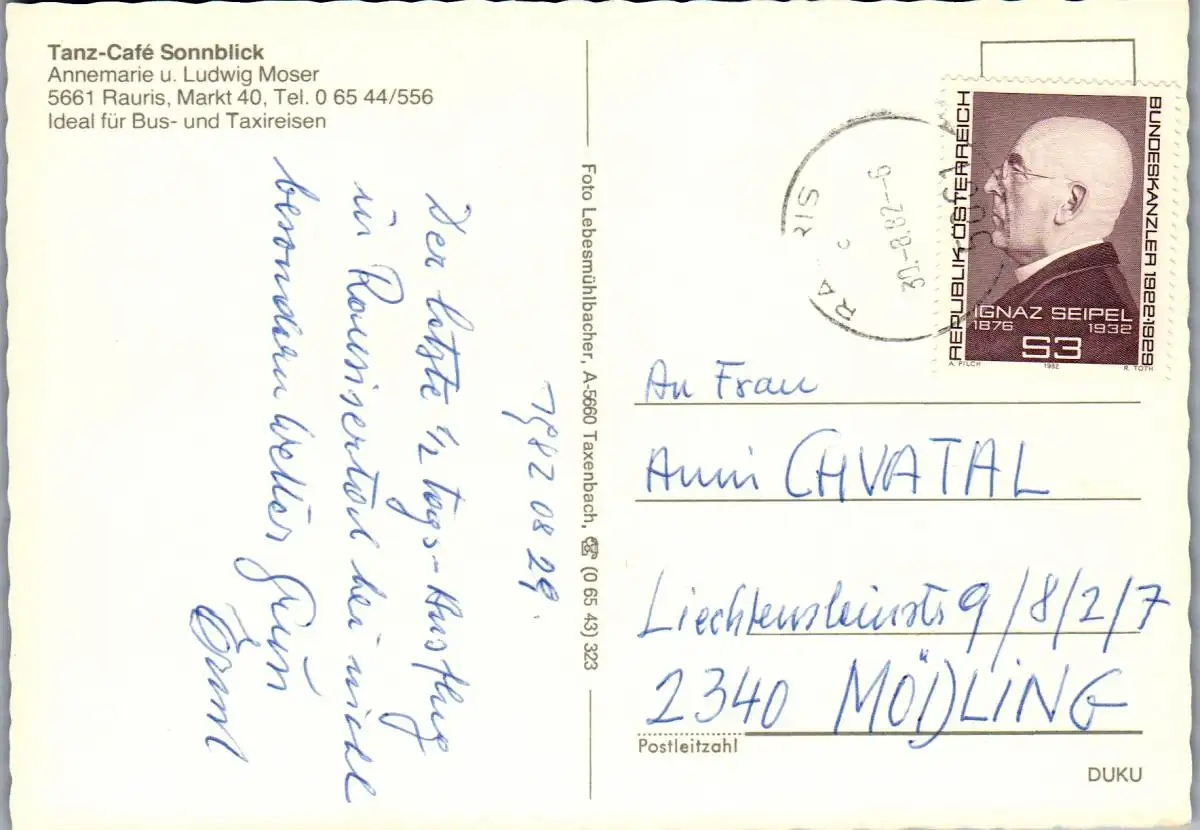 Tanz-Café Sonnblick
Annemarie u. Ludwig Moser
5661 Rauris, Markt 40, Tel. 0 65 44/556
Ideal für Bus- und Taxireisen
1982 08 29.
Der letzte 1/2 tags-Ausflug
in Raurisertal bei nicht
besonderm Wetter
Foto Lebesmühlbacher, A-5660 Taxenbach, ☎ (0 65 43) 323
RAURIS
30.-8.82--9
5661
REPUBLIK ÖSTERREICH
BUNDESKANZLER 1922;1929
IGNAZ SEIPEL
1876 1932
S3
A. PILCH 1982 R. TOTH
An Frau
Anni CHVATAL
Liechtensteinstr 9/8/2/7
2340 MÖDLING
Postleitzahl
DUKU